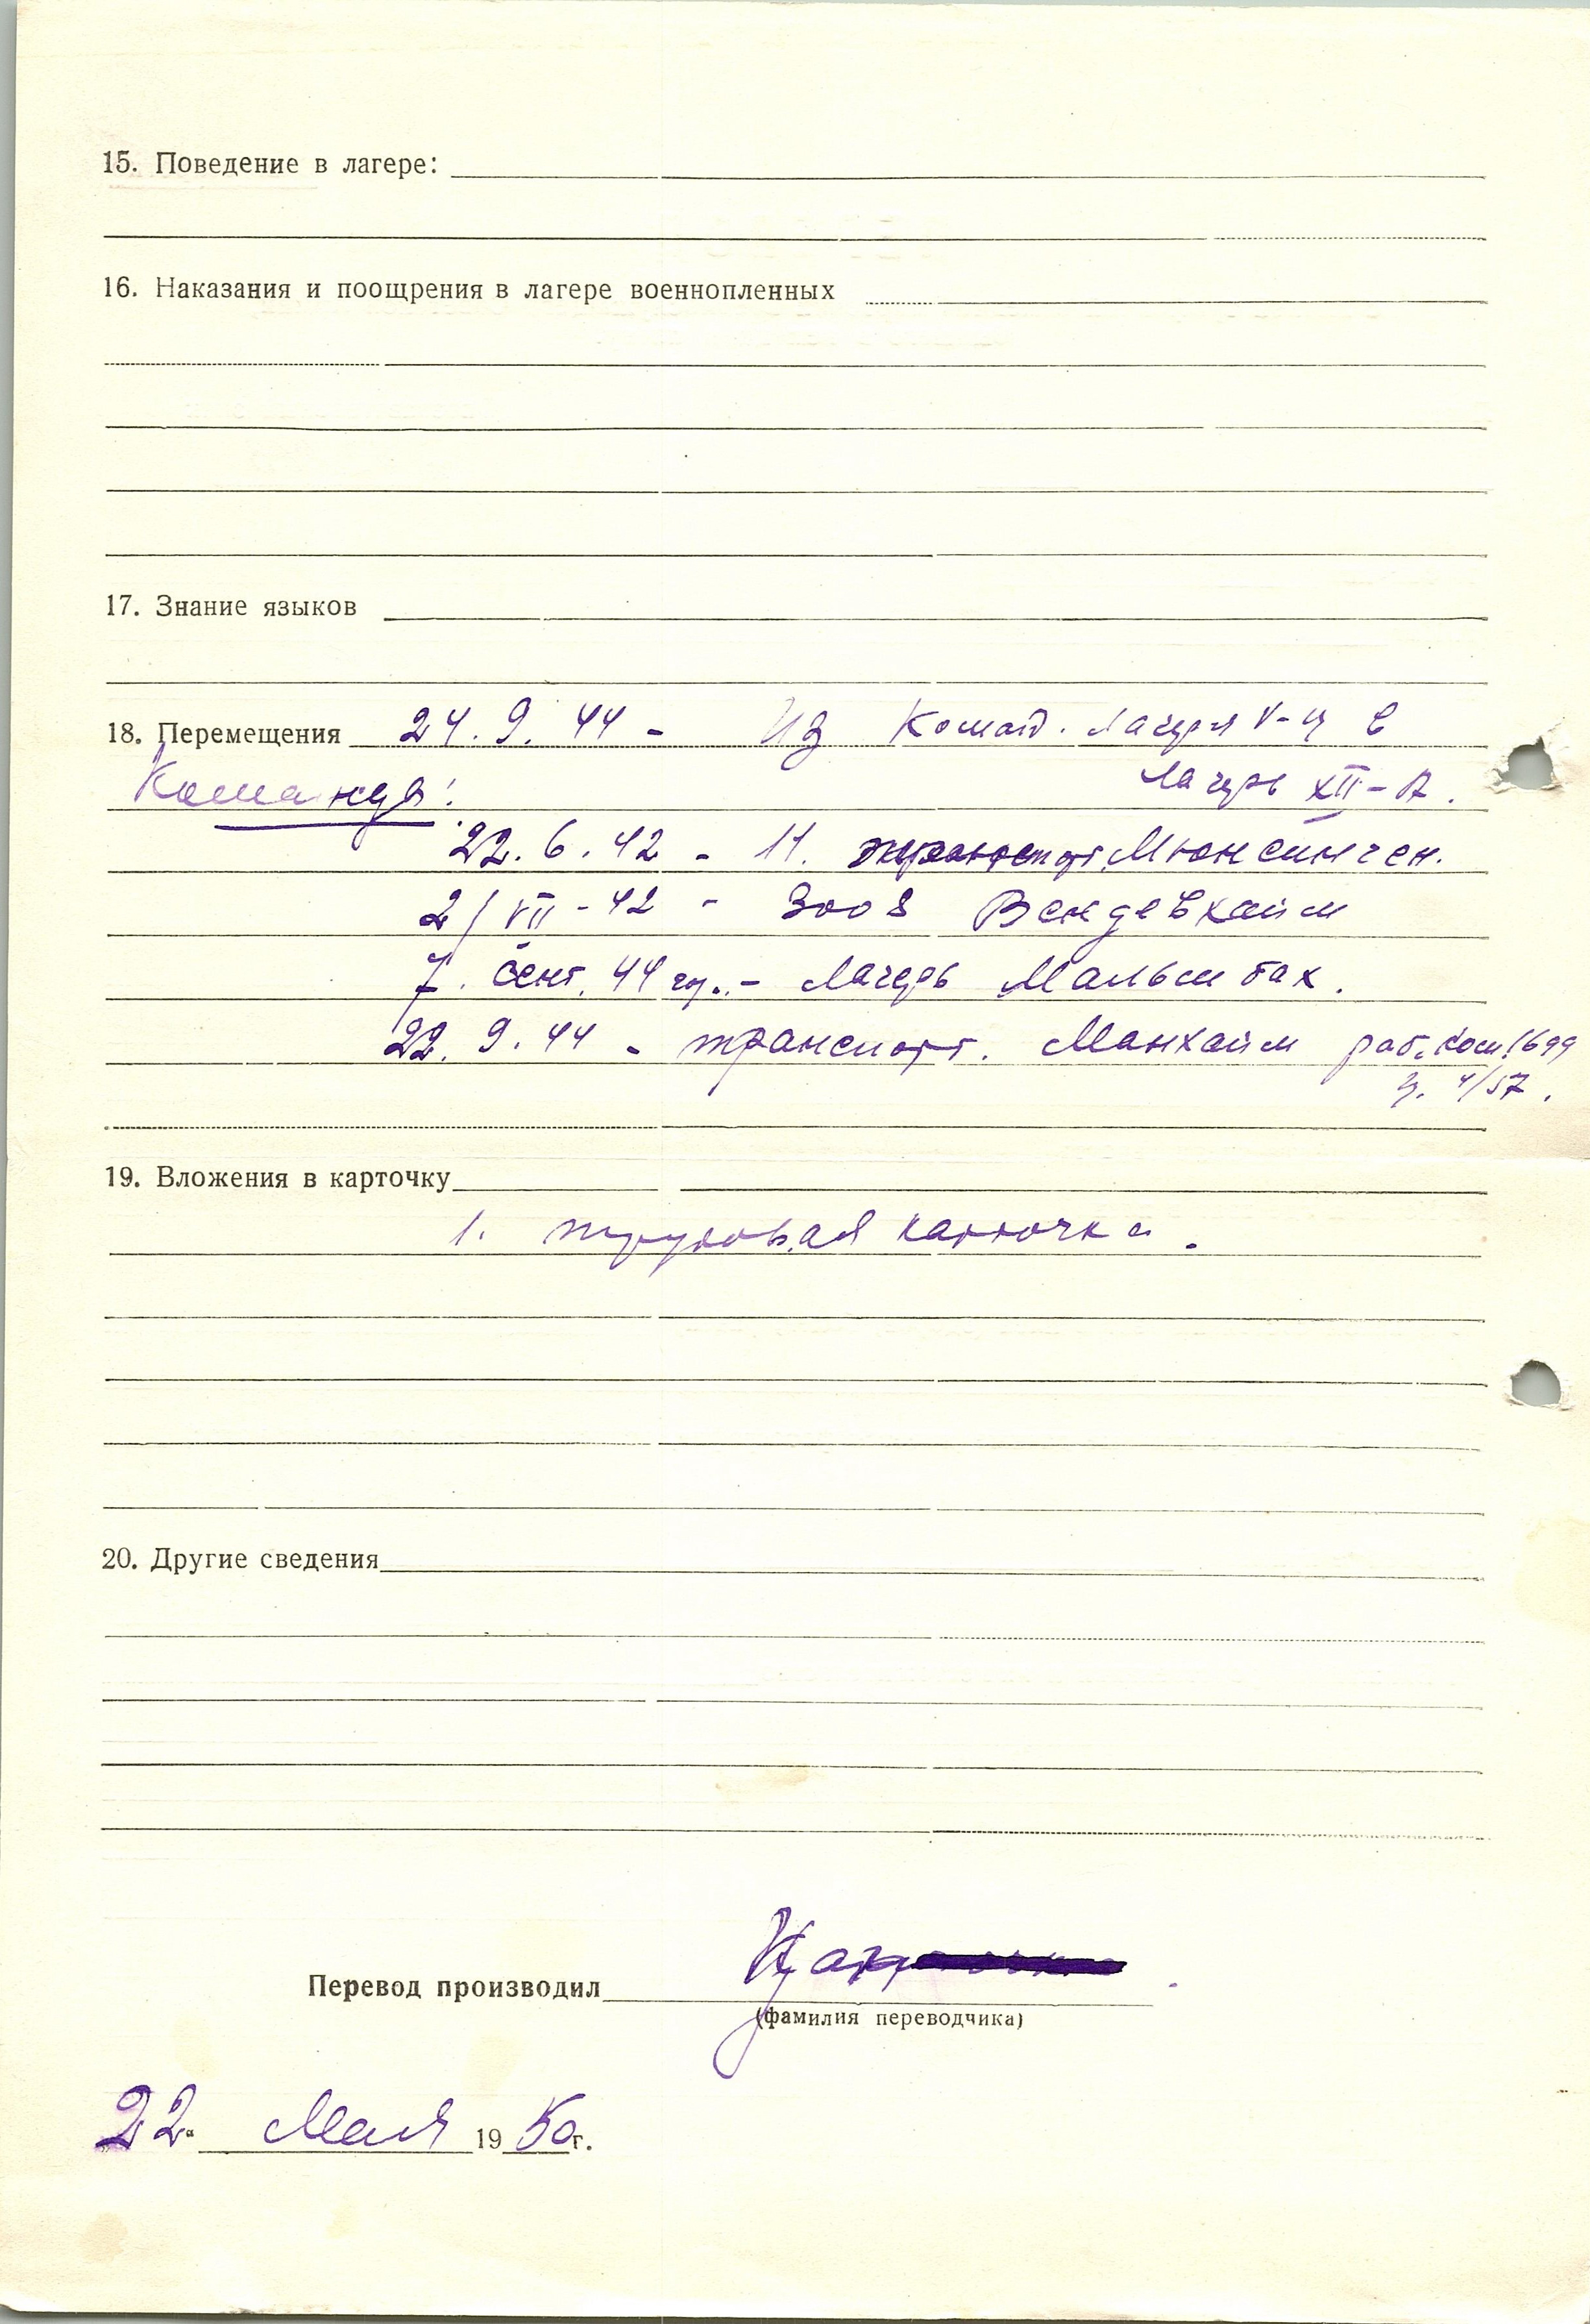 15. Поведение в лагере:
16. Наказания и поощрения в лагере военнопленных
17. Знание языков
18. Перемещения 24. 9. 44 - Из лагеря V- в
Команда: лагерь XII-А.
22. 6. 42 - 11. транспорт. Мюнсинген.
2/VII-42 - 3008
7. сент. 44 - лагерь Мальшбах.
22. 9. 44 - транспорт. Манхайм раб. ком. 1699
4/57.
19. Вложения в карточку
1. трудовая карточка.
20. Другие сведения
Перевод производил
(фамилия переводчика)
22 Мая 1950г.